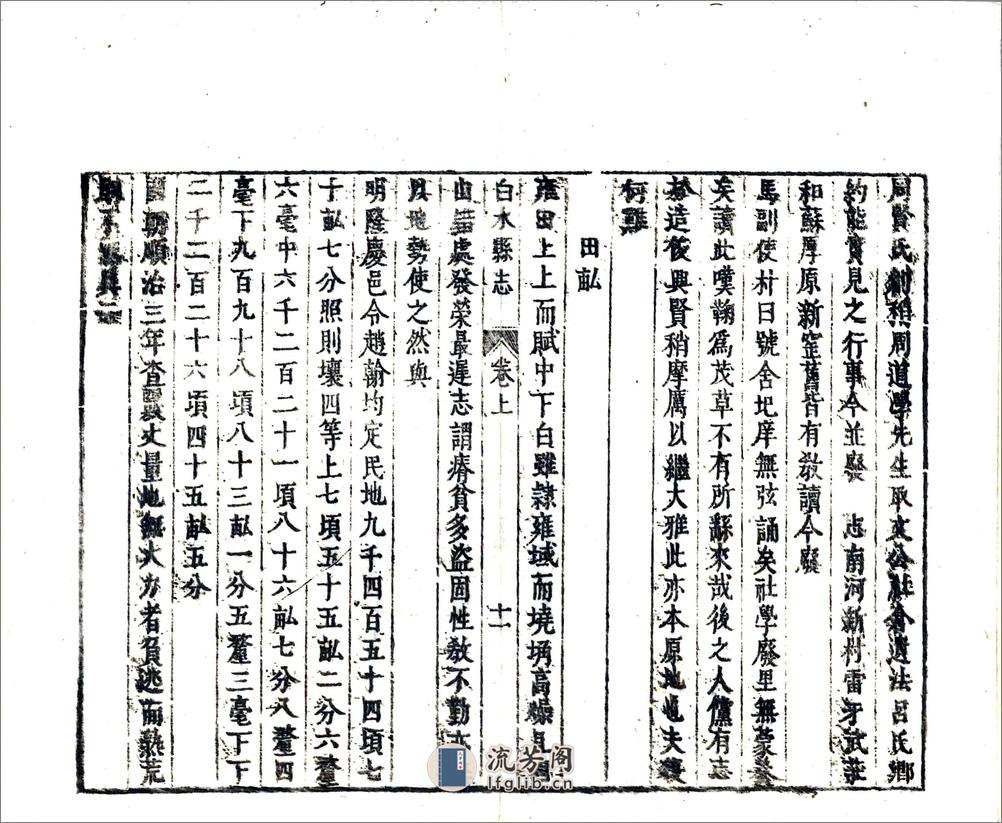 周賢氏創稱周道學先生取文公社倉遺法呂氏鄉
約能實見之行事今並廢　志南河新村雷牙武莊
和蘇厚原新窑舊皆有教讀今廢
馬副使朴曰號舍圮庠無弦誦矣社學廢里無蒙養
矣讀此嘆鞠爲茂草不有所繇來哉後之人儻有志
於造後興賢稍摩厲以繼大雅此亦本原地也夫
何難
田畝
雍田上上而賦中下白雖隸雍域而墝埆高燥且
山 處發榮最遲志謂瘠貧多盜固性敎不勤
地勢使之然與
明隆慶邑令趙翰均定民地九千四百五十四頃七
十畝七分照則壤四等上七頃五十五畝二分六釐
六毫中六千二百二十一頃八十六畝七分八釐四
毫下九百九十八頃八十三畝一分五釐三毫下下
二千二百二十六頃四十五畝五分
國朝順治三年查 丈量地無大力者負逃而熟荒
白水縣志
卷上
十一
流芳阁
lfglib.cn